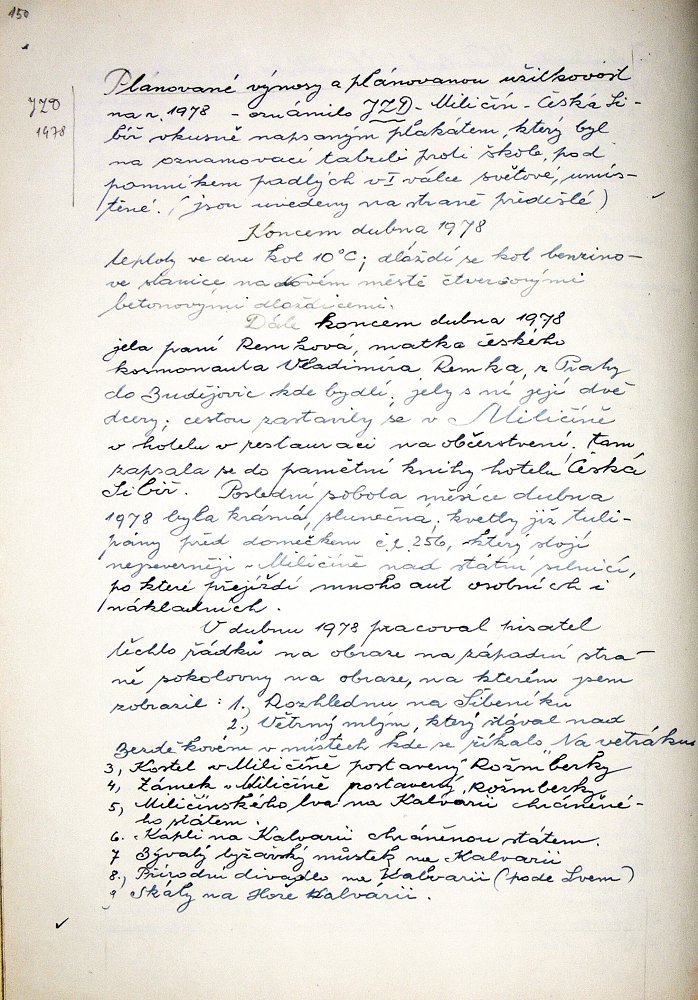 150
JZD
1978
Plánované výnosy a plánovanou užitkovost
na r. 1978 - oznámilo JZD - Miličín - Česká Si-
biř vkusně napsaným plakátem, který byl
na oznamovací tabuli proti škole, pod
pomníkem padlých v I válce světové, umís-
těné. (jsou uvedeny na straně předešlé)
Koncem dubna 1978
teploty ve dne kol 10°C; dláždí se kol benzino-
vé stanice na Novém městě čtvercovými
betonovými dlaždicemi.
Dále koncem dubna 1978
jela paní Remková, matka českého
kosmonauta Vladimíra Remka, z Prahy
do Budějovic kde bydlí; jely s ní její dvě
dcery; cestou zastavily se v Miličíně
v hotelu v restauraci na občerstvení. Tam
zapsala se do pamětní knihy hotelu Česká
Sibiř. Poslední sobota měsíce dubna
1978 byla krásná, slunečná; kvetly již tuli-
pány před domečkem č.p. 256, který stojí
nejseverněji v Miličíně nad státní silnicí,
po které přejíždí mnoho aut osobních i
nákladních.
V dubnu 1978 pracoval pisatel
těchto řádků na obraze na západní stra-
ně sokolovny na obraze, na kterém jsem
zobrazil: 1., Rozhlednu na Šibeníku
2., Větrný mlýn, který stával nad
Bezděkovem v místech kde se říkalo "Na větráku
3, Kostel v Miličíně postavený Rožmberky
4, Zámek v Miličíně postavený Rožmberky
5, Miličínského lva na Kalvarii chráněné-
ho státem.
6. Kapli na Kalvarii chráněnou státem.
7 Bývalý lyžařský můstek na Kalvarii
8., Přírodní divadlo na Kalvarii (pode Lvem)
9 Skály na Hoře Kalvárii.